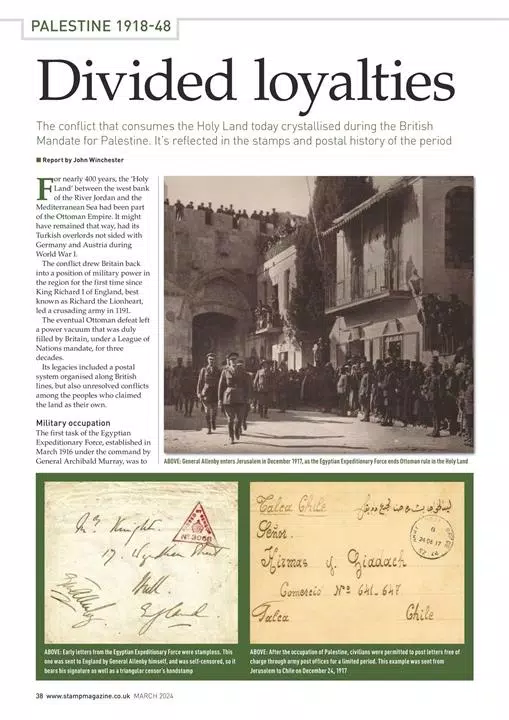 PALESTINE 1918-48
Divided loyalties
The conflict that consumes the Holy Land today crystallised during the British
Mandate for Palestine. It's reflected in the stamps and postal history of the period
Report by John Winchester
For nearly 400 years, the 'Holy
Land' between the west bank
of the River Jordan and the
Mediterranean Sea had been part
of the Ottoman Empire. It might
have remained that way, had its
Turkish overlords not sided with
Germany and Austria during
World War I.
The conflict drew Britain back
into a position of military power in
the region for the first time since
King Richard I of England, best
known as Richard the Lionheart,
led a crusading army in 1191.
The eventual Ottoman defeat left
a power vacuum that was duly
filled by Britain, under a League of
Nations mandate, for three
decades.
Its legacies included a postal
system organised along British
lines, but also unresolved conflicts
among the peoples who claimed
the land as their own.
Military occupation
The first task of the Egyptian
Expeditionary Force, established in
March 1916 under the command by
General Archibald Murray, was to
ABOVE: General Allenby enters Jerusalem in December 1917, as the Egyptian Expeditionary Force ends Ottoman rule in the Holy Land
Knight.
17. Wyndham Street
Hull.
England
EAllenby
Nº 3068
Talca Chile
Señor.
Hirmas y Giadach
Comercio Nº 641-647.
Talca Chile
24 DE 17
ABOVE: Early letters from the Egyptian Expeditionary Force were stampless. This
one was sent to England by General Allenby himself, and was self-censored, so it
bears his signature as well as a triangular censor's handstamp
ABOVE: After the occupation of Palestine, civilians were permitted to post letters free of
charge through army post offices for a limited period. This example was sent from
Jerusalem to Chile on December 24, 1917
38 www.stampmagazine.co.uk MARCH 2024